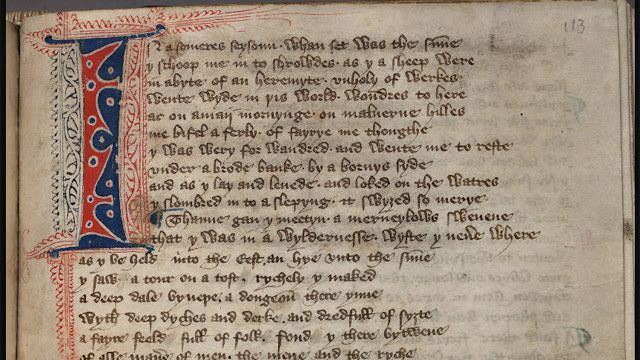 113
In a someres seysoun. whan set was the sunne
y schoop me in to shroudes. as y a sheep were
in abyte of an heremyte. vnholy of werkes
wente wyde in þis world. wondres to here
ac on a may mornynge. on maluerne hilles
me bifel a ferly. of fayrye me thoughte
y was wery for wandred. and wente me to reste
vnder a brode banke. by a bornys syde
and as y lay and lenede. and loked on the watres
y slombred in to a slepyng. it swyzed so merye.
Thanne gan y meetyn. a merueylous swevene
that y was in a wyldernesse. wyste y neuer where
as y be held into the Eest, an hye vnto the sunne
y saw. a tour on a toft. rychely y maked
a deep dale bynepe. a dongeon there ynne
wyth deep dyches and derke. and dredfull of syzte
a fayre feeld full of folk. fond y there bytwene
of alle maner of men. the mene and the ryche